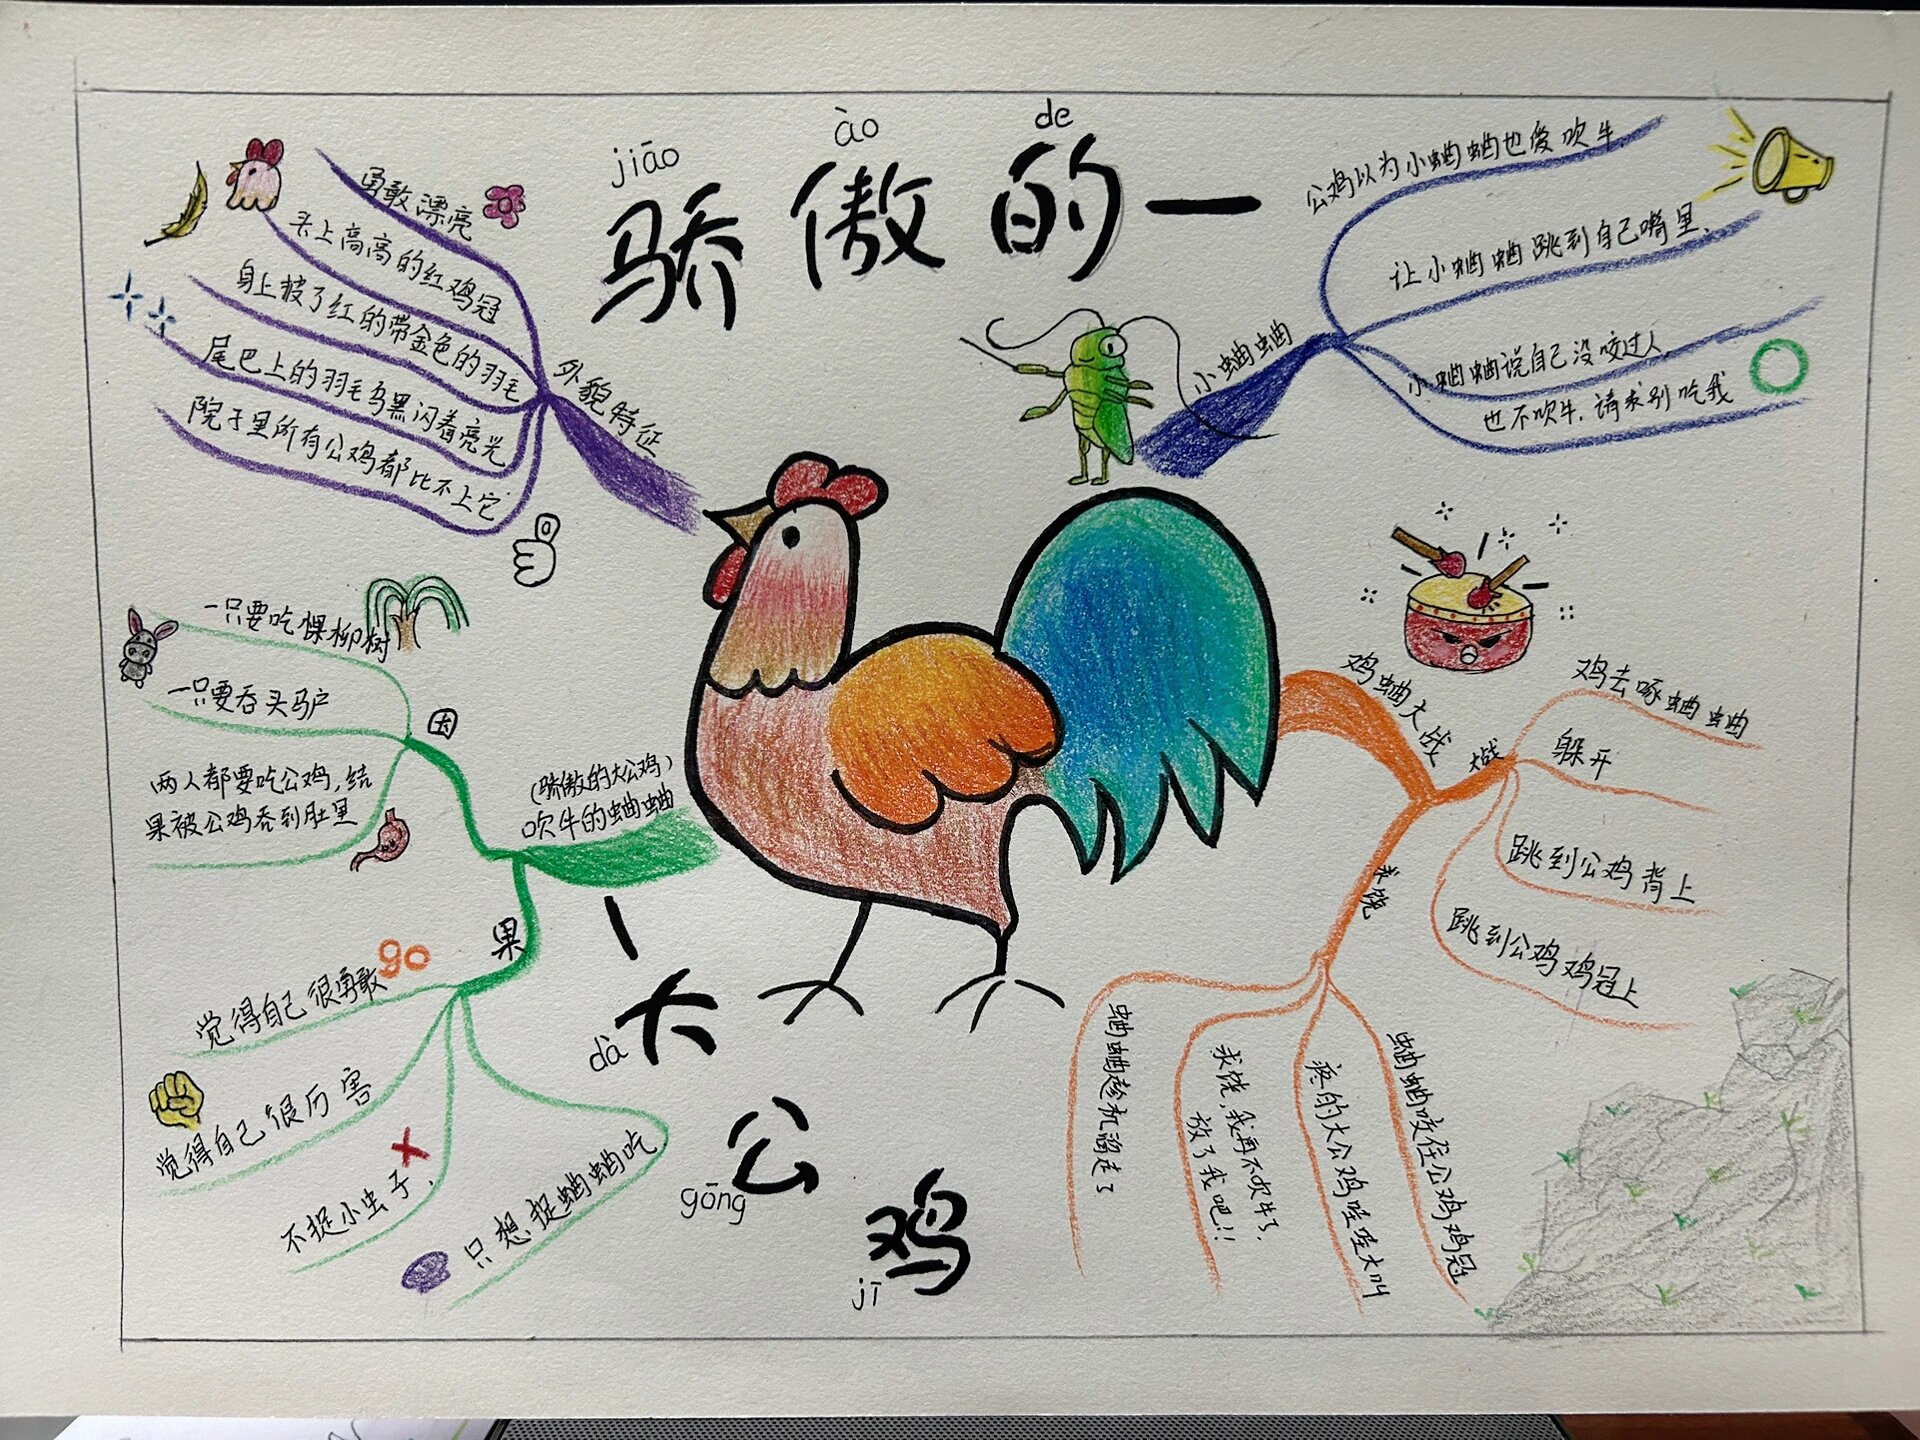 jiāo ào de
骄傲的一
一大公鸡
dà
gōng
jī
外貌特征
勇敢漂亮
头上高高的红鸡冠
身上披了红的带金色的羽毛
尾巴上的羽毛乌黑闪着亮光
院子里所有公鸡都比不上它
小蛐蛐
公鸡以为小蛐蛐也爱吹牛
让小蛐蛐跳到自己嘴里,
小蛐蛐说自己没咬过人,
也不吹牛,请求别吃我
(骄傲的大公鸡)
吹牛的蛐蛐
因
一只要吃棵柳树
一只要吞头马户
两人都要吃公鸡,结
果被公鸡吞到肚里
果
go
觉得自己很勇敢
觉得自己很厉害
不捉小虫子,
只想捉蛐蛐吃
鸡蛐大战
大战
鸡去啄蛐蛐
躲开
跳到公鸡背上
跳到公鸡鸡冠上
求饶
蛐蛐咬住公鸡鸡冠
疼的大公鸡哇哇大叫
求饶,我再不吹牛了,
放了我吧!!
蛐蛐趁机溜走了